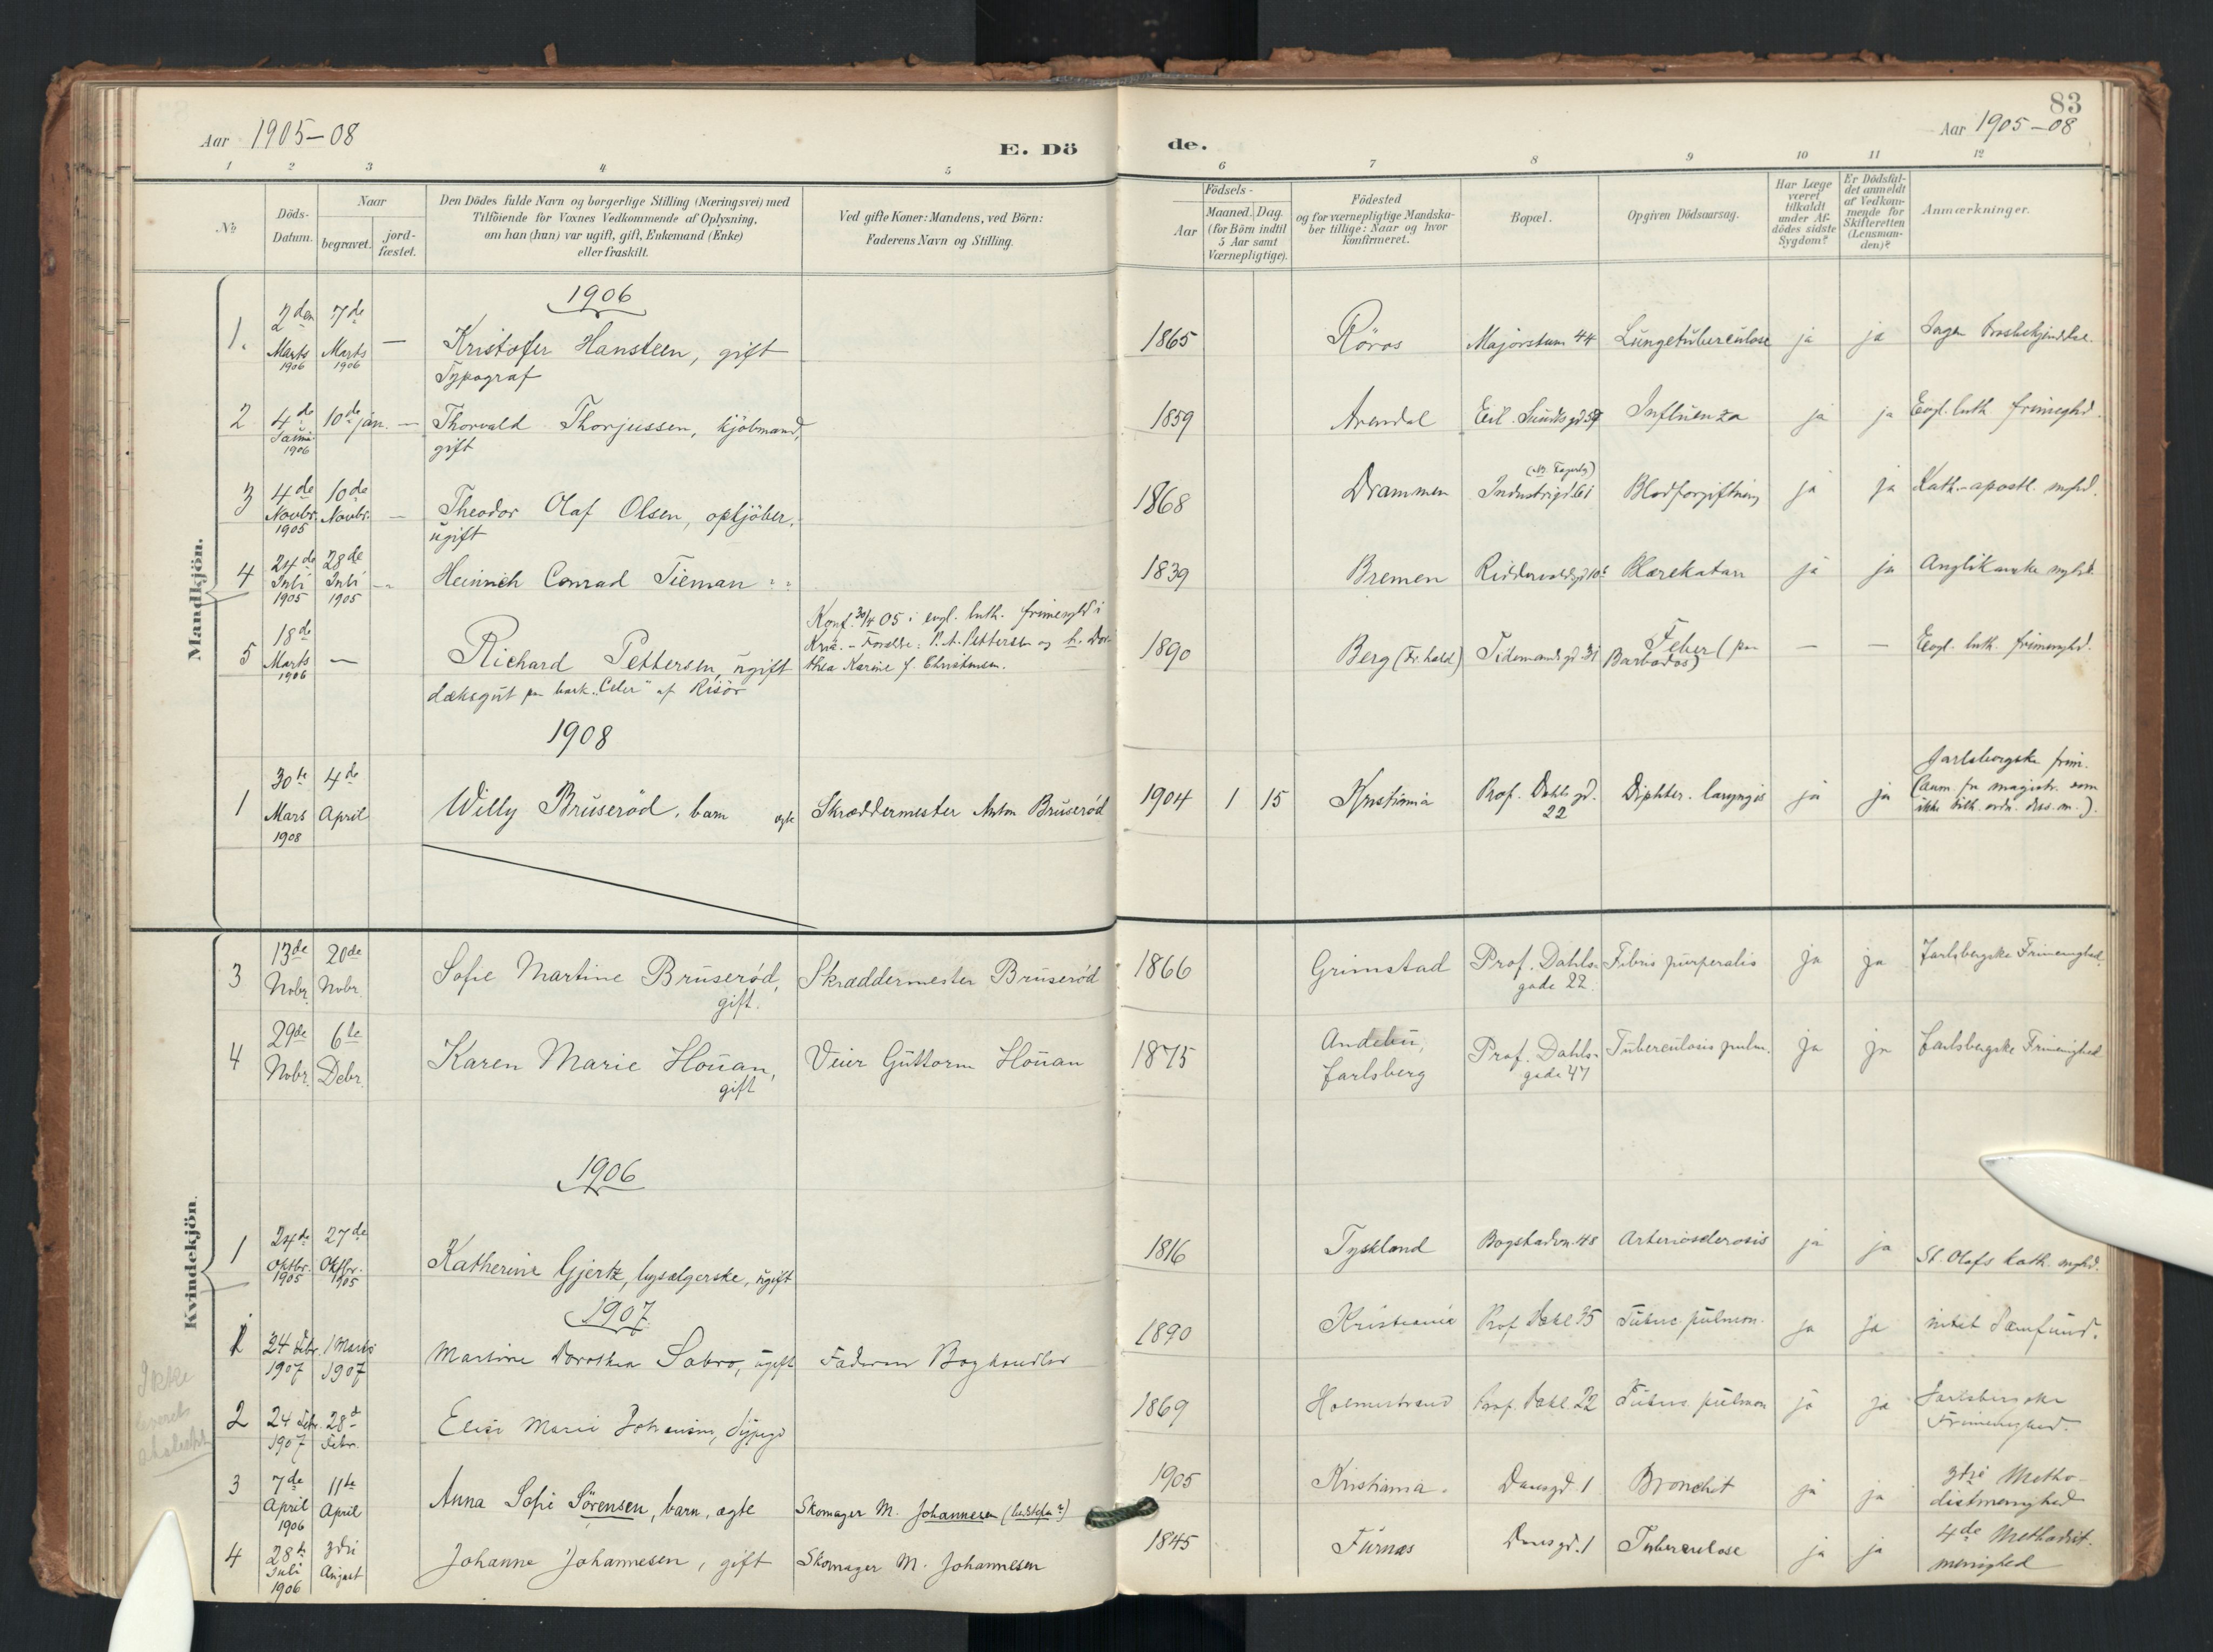 Aar 1905-08
E. Dö
de.
83
Aar 1905-08
1 2 3 4 5 6 7 8 9 10 11 12
No
Döds-Datum.
Naar
begravet.
jord-fæstet.
Den Dödes fulde Navn og borgerlige Stilling (Næringsvei) med
Tilföiende for Voxnes Vedkommende af Oplysning,
om han (hun) var ugift, gift, Enkemand (Enke)
eller fraskilt.
Ved gifte Koner: Mandens, ved Börn:
Faderens Navn og Stilling.
Födsels-
Aar
Maaned. Dag.
(for Börn indtil
5 Aar samt
Værnepligtige).
Födested
og for værnepligtige Mandska-
ber tillige: Naar og hvor
konfirmeret.
Bopæl.
Opgiven Dödsaarsag.
Har Læge
været
tilkaldt
under Af-
dödes sidste
Sygdom?
Er Dödsfal-
det anmeldt
af Vedkom-
mende for
Skifteretten
(Lensman-
den)?
Anmærkninger.
Mandkjön.
1906
1. 2den Marts 1906 7de Marts 1906 — Kristofer Hansteen, gift
Typograf
1865 Röros Majorstuen 44 Lungetuberculose ja ja Ingen trosbekjendelse.
2 4de 1906 10de jan. — Thorvald Thorjussen, kjöbmand,
gift
1859 Arendal Eil. Sundts gd 39 Influenza ja ja Evgl. luth. frimeghd.
3 4de Novbr. 1905 10de Novbr. — Theodor Olaf Olsen, opkjöber,
ugift
1868 Drammen Industrigd. 61 Blodforgiftning ja ja Kath.-apostl. mghd.
4 24de Juli 1905 28de Juli 1905 — Heinrich Conrad Tieman
1839 Bremen Riddervoldsgd 10b Blærekatarr ja ja Anglikanske mghd.
5 18de Marts 1906 — Richard Pettersen, ugift
dæksgut paa bark "Celer" af Risör
Konf. 30/4 05 i evgl. luth. frimenghd i
Kria. - Foreldre: P. A. Pettersen og h. Dor-
thea Karine f. Christensen.
1890 Berg (Fr.hald) Tidemands gd. 31 Feber (paa
Barbados) — — Evgl. luth. frimenghd.
1908
1 30te Mars 1908 4de April Willy Bruserød, barn ægte Skræddermester Anton Bruserød
1904 1 15 Kristiania Prof. Dahls gd.
22 Diphter. laryngis ja ja Jarlsbergske frim.
(anm. fra magistr. som
ikke
Kvindekjön.
3 13de Nobr. 20de Nobr. Sofie Martine Bruserød,
gift.
Skræddermester Bruserød
1866 Grimstad Prof. Dahls-
gade 22. Febris puerperalis ja ja Jarlsbergske Frimenighed.
4 29de Nobr. 6te Debr. Karen Marie Houan,
gift
Veier Guttorm Houan
1875 Andebu,
Jarlsberg Prof. Dahls-
gade 47 Tuberculosis pulm. ja ja Jarlsbergske Frimenighed
1906
1 24de Oktbr. 1905 27de Oktbr. 1905 Katherine Gjertz, lysælgerske, ugift
1816 Tyskland Bogstadvn. 48 Arteriosclerosis ja ja St. Olafs kath. mghd.
1907
1 24 Febr. 1907 1 Marts 1907 Martine Dorothea Sabro, ugift Faderen Boghandler
1890 Kristiania Prof Dahl 35 Tuberc. pulmon. ja ja intet Samfund.
Ikke
2 24 Febr. 1907 28de Febr. Elise Marie Johansen, Sypige
1869 Holmestrand Prof. Dahl. 22 Tuberc. pulmon ja ja Jarlsbergske
Frimenighed.
3 7de April 1906 11te April Anna Sofie Sörensen, barn, ægte Skomager M. Johannesen
1905 Kristiania. Daasgd. 1 Bronchit ja ja 3die Metho-
distmenighed
4 28de Juli 1906 3die August Johanne Johannesen, gift Skomager M. Johannesen
1845 Furnæs Daasgd. 1 Tuberculose ja ja 4de Methodist-
menighed